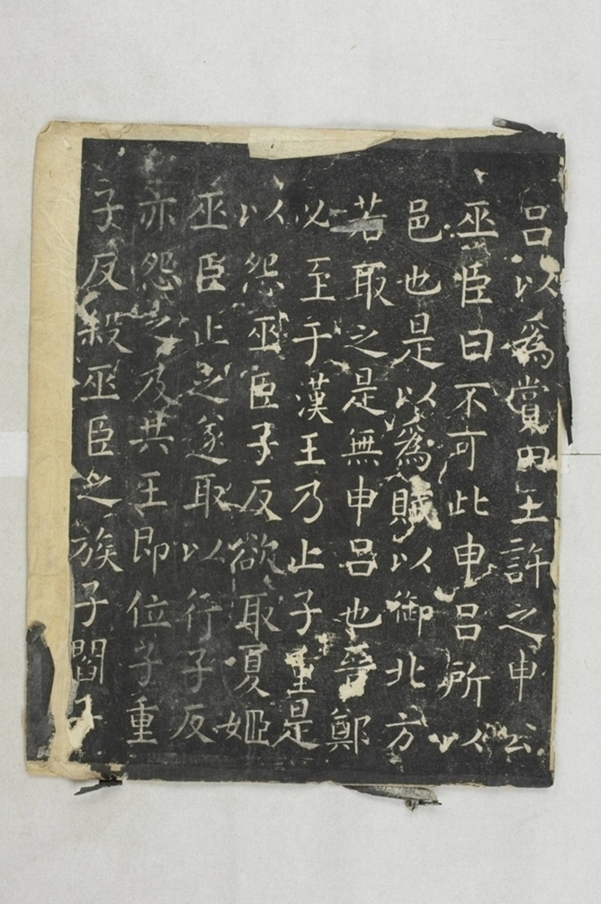 呂以為賞田王許之申公
巫臣曰不可此申呂所以
邑也是以為賦以御北方
若取之是無申呂也晉鄭
必至于漢王乃止子重是
以怨巫臣子反欲取夏姬
巫臣止之遂取以行子反
亦怨之及共王即位子重
子反殺巫臣之族子閻子